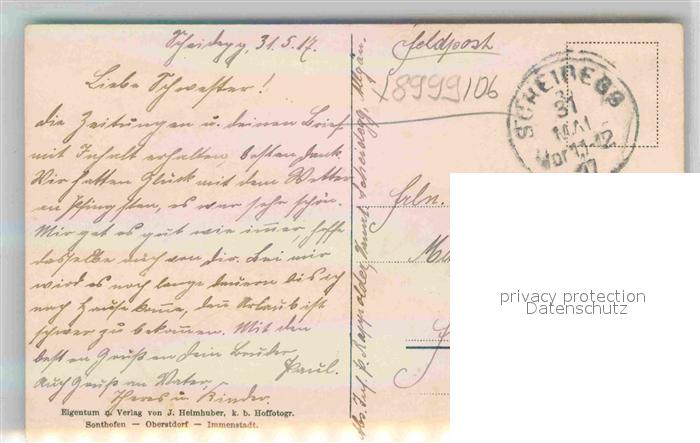 Scheidegg, 31.5.17.
Feldpost
18999/06
SCHEIDEGG
31
MAI
Vor 11-12
17
Liebe Schwester!
die Zeitungen u. deinen Brief
mit Inhalt erhalten besten Dank.
Wir hatten Glück mit dem Wetter
an Pfingsten, es war sehr schön.
Mir get es gut wie immer, hoffe
dasselbe auch von dir. Bei mir
wird es noch lange dauern bis ich
nach Hause komme, den Urlaub ist
schwer zu bekommen. Mit den
besten Gruß an dein Bruder
Paul.
Auch Gruß an Vater,
Theres u. Kinder.
Abs. Inf. P. Scheidegg, Algäu.
Frln.
Eigentum u. Verlag von J. Heimhuber, k. b. Hoffotogr.
Sonthofen — Oberstdorf — Immenstadt.
privacy protection
Datenschutz